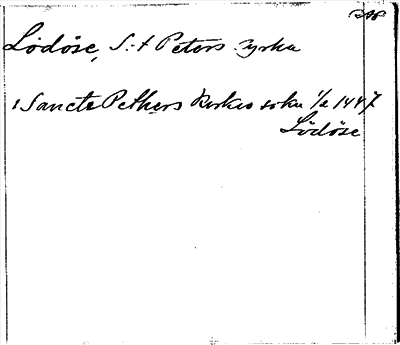 Lödöse, S:t Peters kyrka
i Sancte Pethers kirkio sokn 1/2 1447
Lödöse